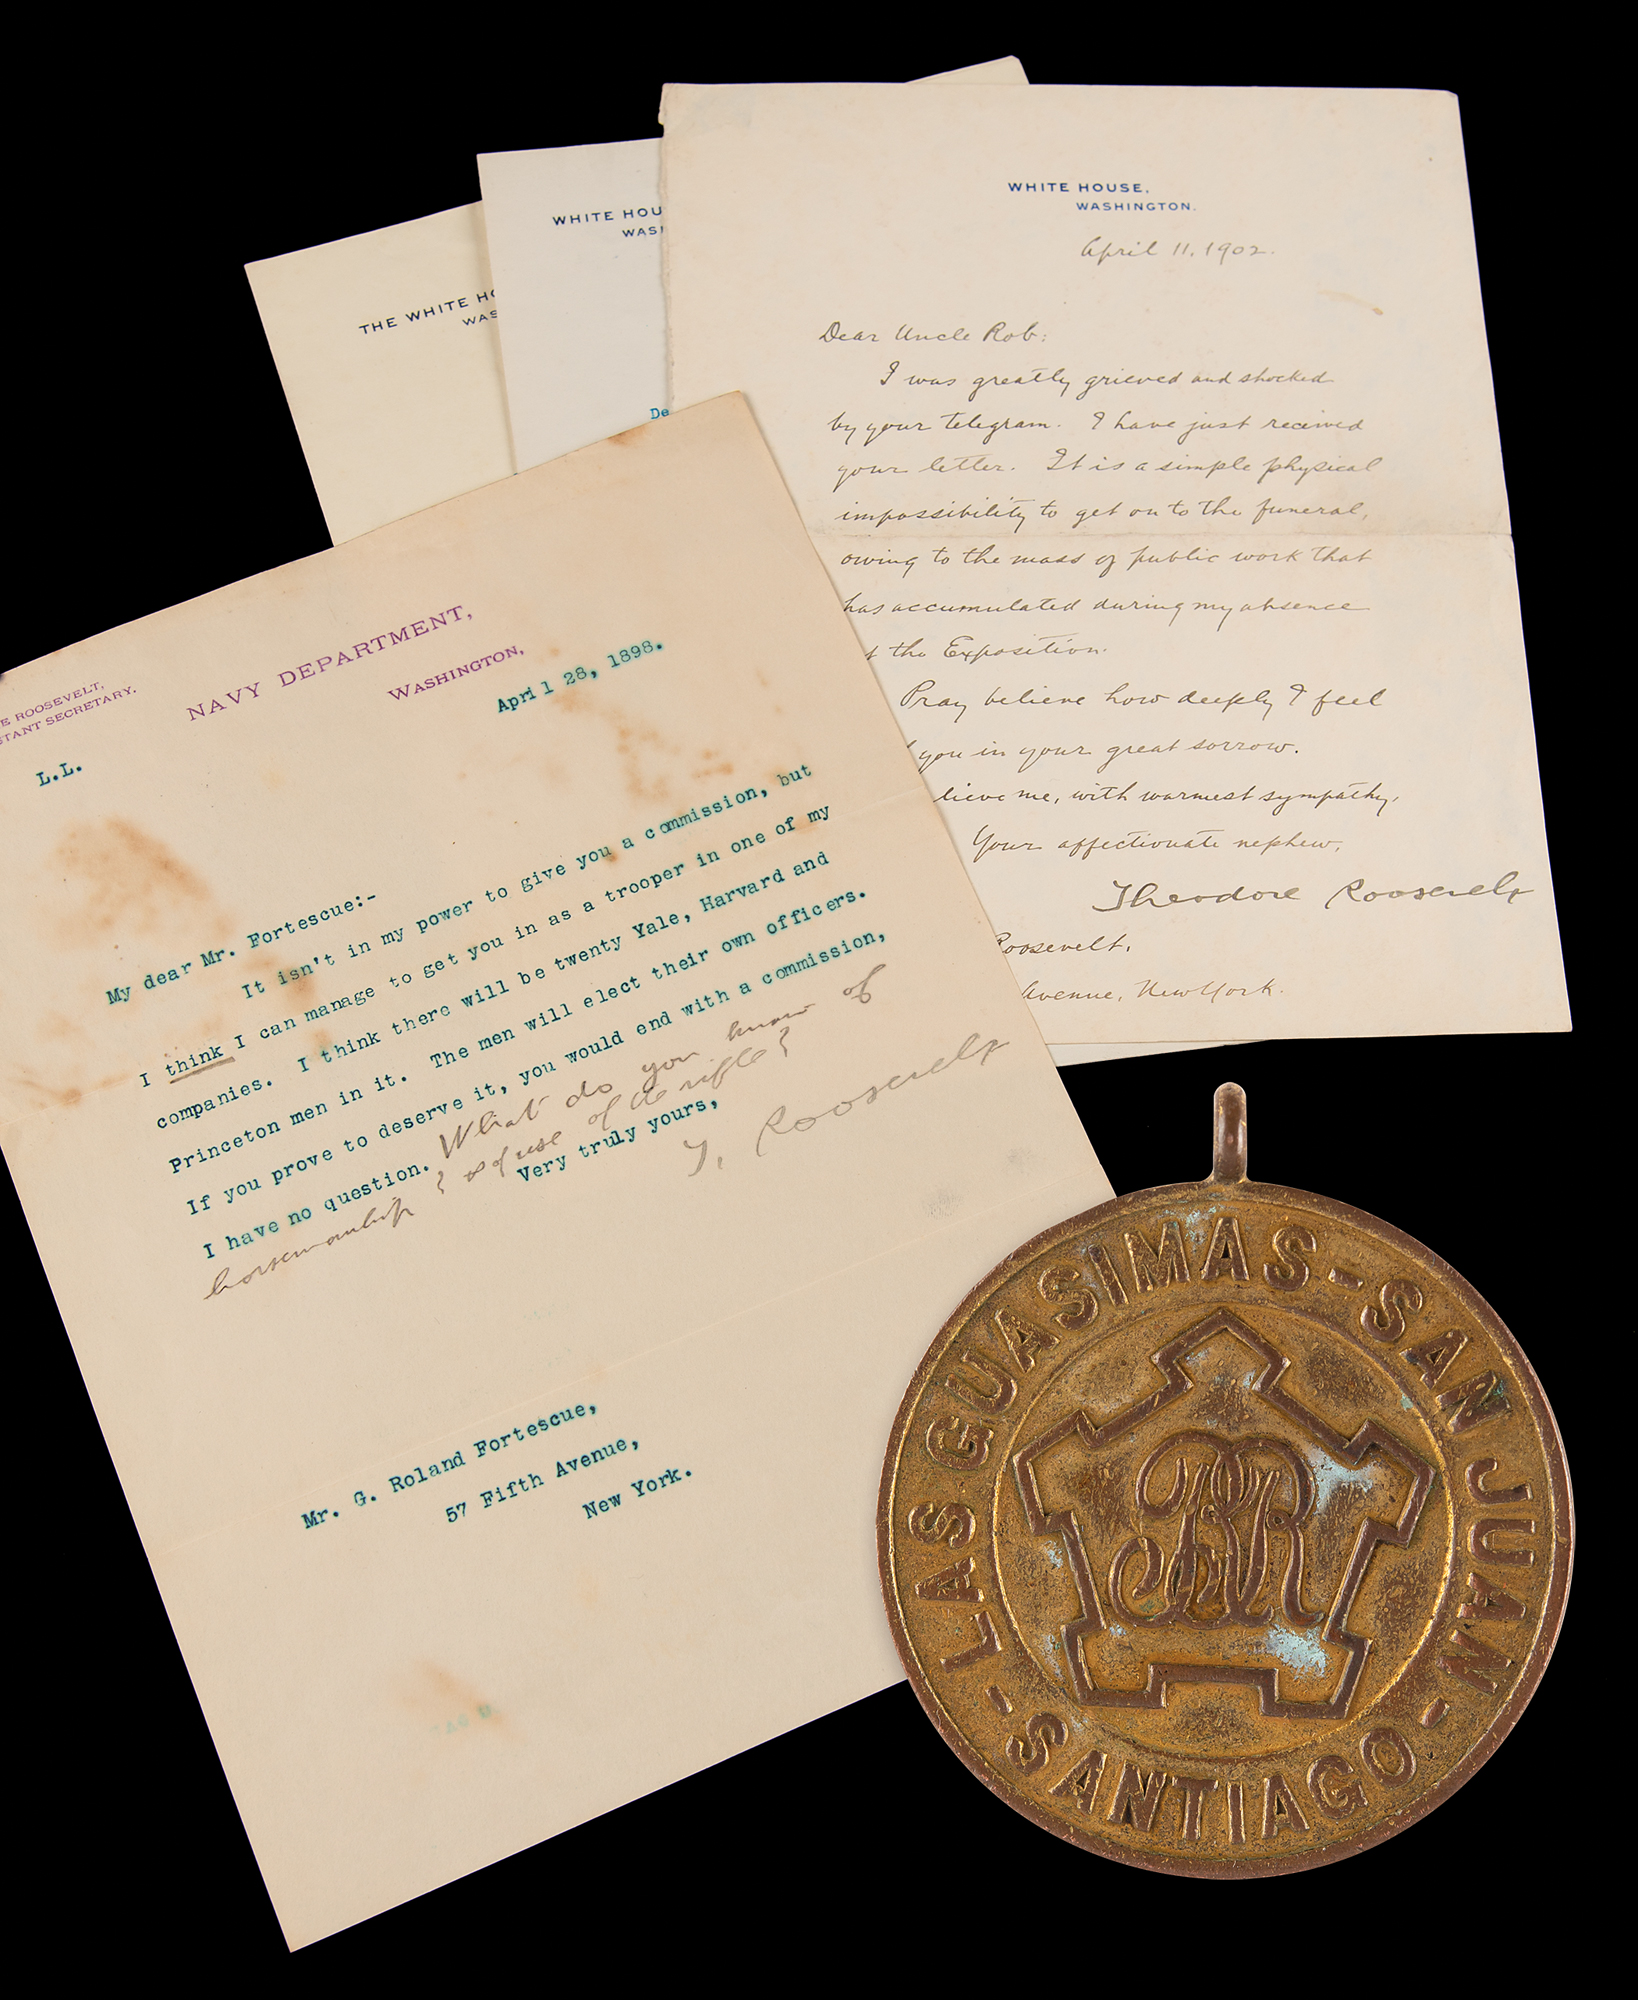 THE WHITE HO
WAS
WHITE HOU
WASI
De
WHITE HOUSE,
WASHINGTON.
April 11, 1902.
Dear Uncle Rob:
I was greatly grieved and shocked
by your telegram. I have just received
your letter. It is a simple physical
impossibility to get on to the funeral,
owing to the mass of public work that
has accumulated during my absence
t the Exposition.
Pray believe how deeply I feel
you in your great sorrow.
lieve me, with warmest sympathy,
Your affectionate nephew,
Theodore Roosevelt
Roosevelt,
Avenue, New York.
E ROOSEVELT,
STANT SECRETARY.
NAVY DEPARTMENT,
WASHINGTON,
April 28, 1898.
L.L.
My dear Mr. Fortescue:-
It isn't in my power to give you a commission, but
I think I can manage to get you in as a trooper in one of my
companies. I think there will be twenty Yale, Harvard and
Princeton men in it. The men will elect their own officers.
If you prove to deserve it, you would end with a commission,
I have no question. What do you know of
horsemanship? & of use of the rifle?
Very truly yours,
T. Roosevelt
Mr. G. Roland Fortescue,
57 Fifth Avenue,
New York.
LAS GUASIMAS-SAN JUAN-
SANTIAGO-
RR